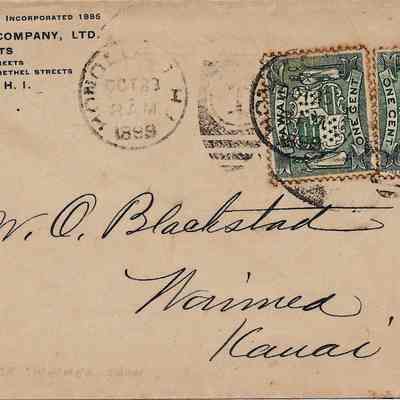 Incorporated 1886
COMPANY, LTD.
TS
REETS
BETHEL STREETS
H. I.
HONOLULU
OCT 23
8 AM
1899
H. I.
HAWAII
ONE CENT
ONE CENT
W. O. Blackstad
Waimea
Kauai